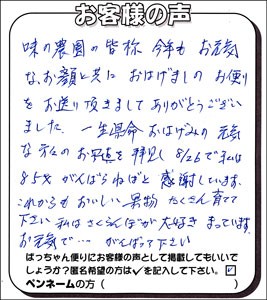 お客様の声
味の農園の皆称 今年も お元気
な、お顔と共に おはげましの お便り
を お送り頂きまして ありがとうござい
ました. 一生県命 おはげみの 元気
な方々の お写真を 拝見し 8/26で私は
85才 がんばらねばと 感謝しています.
これからも おいしい 果物 たくさん育てて
下さい 私は さくらんぼが 大好き まっています.
お元気で… がんばって下さい
ばっちゃん便りにお客様の声として掲載してもいいで
しょうか?匿名希望の方は✓を記入して下さい。☑
ペンネームの方( )